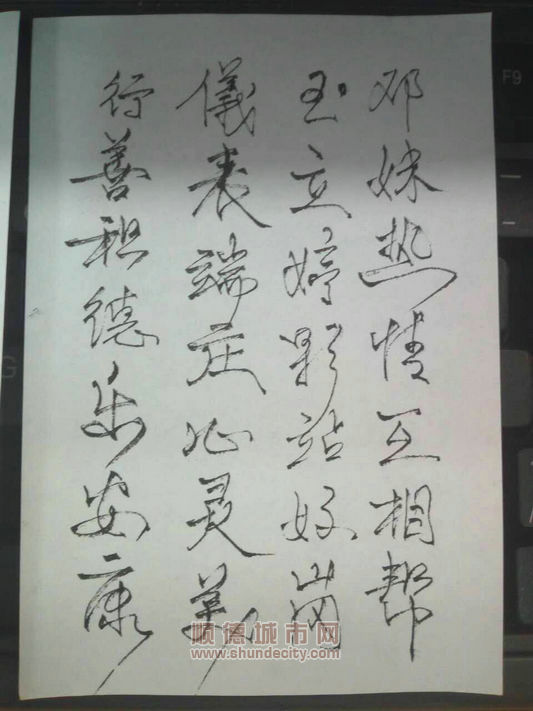 邓妹热情互相帮
玉立婷影站好岗
儀表端庄心灵美
行善积德乐安康
顺德城市网
www.shundecity.com
F9